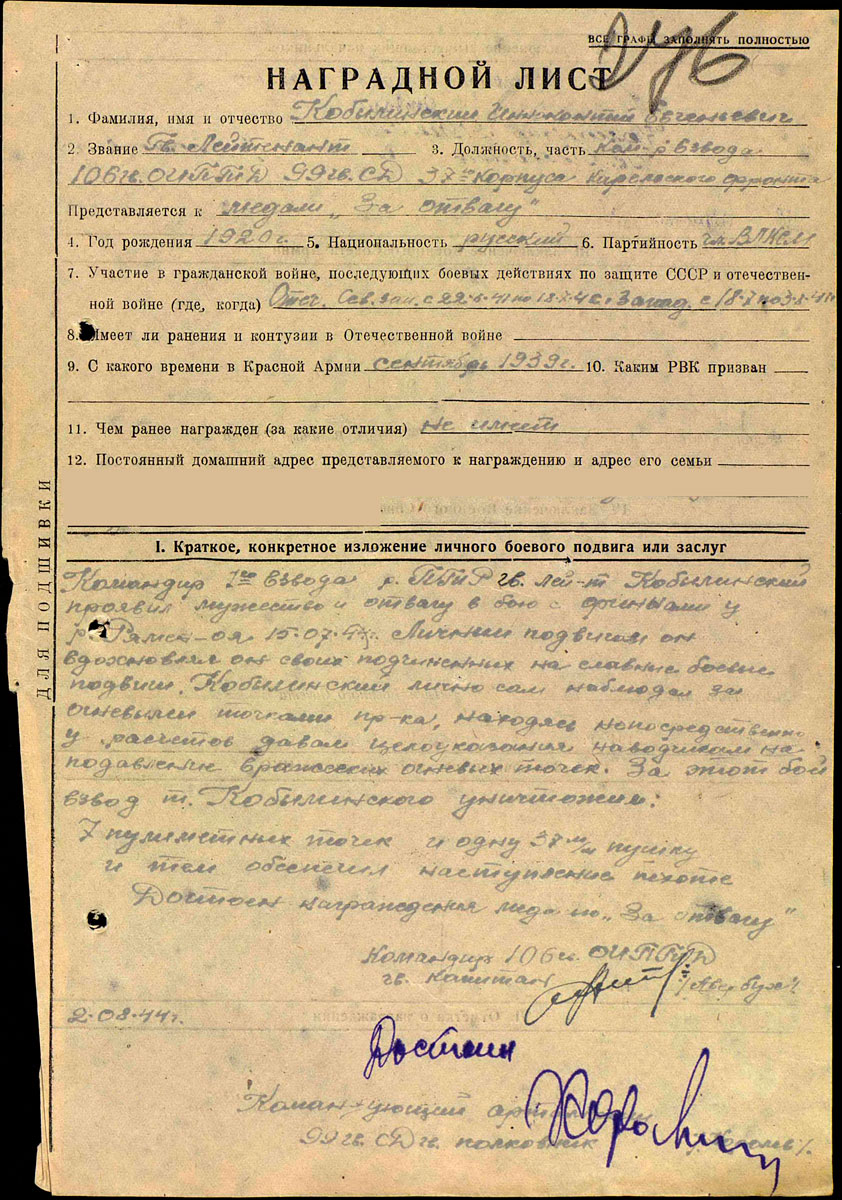 ВСЕ ГРАФЫ ЗАПОЛНЯТЬ ПОЛНОСТЬЮ
НАГРАДНОЙ ЛИСТ
1. Фамилия, имя и отчество Кобылинский Иннокентий Евгеньевич
2. Звание Гв. Лейтенант 3. Должность, часть Ком-р взвода
106 гв. ОИППД 99 гв. СД 37го Корпуса Карельского фронта
Представляется к медали „За отвагу"
4. Год рождения 1920 г. 5. Национальность русский 6. Партийность чл. ВЛКСМ
7. Участие в гражданской войне, последующих боевых действиях по защите СССР и отечествен-
ной войне (где, когда) Отеч. Сев. зап. с 22-6-41 по Запад. с 18-7 по
8. Имеет ли ранения и контузии в Отечественной войне
9. С какого времени в Красной Армии сентябрь 1939 г. 10. Каким РВК призван
11. Чем ранее награжден (за какие отличия) не имеет
12. Постоянный домашний адрес представляемого к награждению и адрес его семьи
ДЛЯ ПОДШИВКИ
I. Краткое, конкретное изложение личного боевого подвига или заслуг
Командир 1го взвода р. ПТР гв. лей-т Кобылинский
проявил мужество и отвагу в бою с финнами у
15.07.44г. Личным подвигом он
вдохновлял он своих подчиненных на славные боевые
подвиги. Кобылинский лично сам наблюдал за
огневыми точками пр-ка, находясь непосредственно
у расчетов давал целоуказания наводчикам на
подавление вражеских огневых точек. За этот бой
взвод т. Кобылинского уничтожил:
7 пулиметных точек и одну 37 м/м пушку
и тем обеспечил наступление пехоте
Достоен награждения медалью „За отвагу"
Командир 106 гв. ОИППД
гв. капитан /Авербух/
2-08-44г.
Достоин
Командующий артиллерии
99 гв. СД гв. полковник